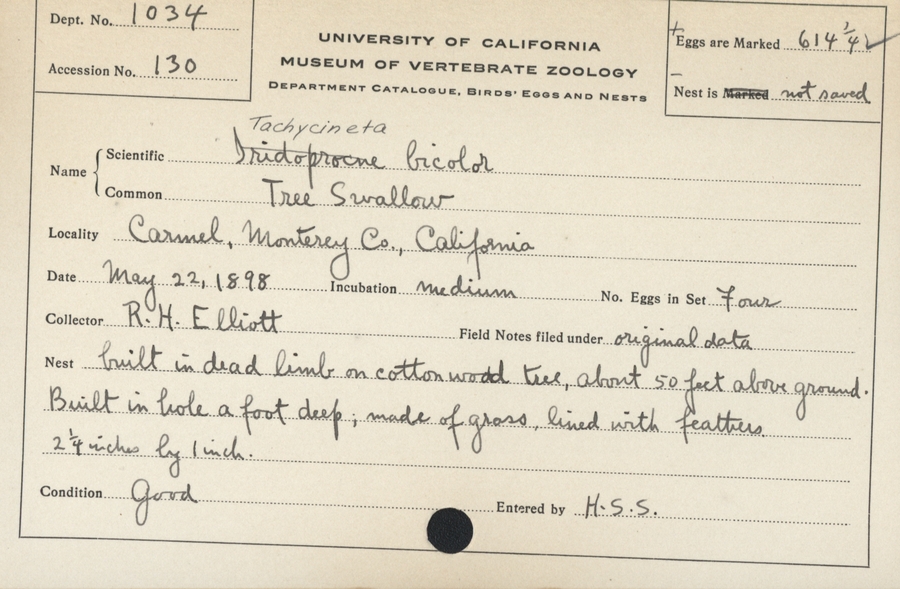 Dept. No. 1034
Accession No. 130
UNIVERSITY OF CALIFORNIA
MUSEUM OF VERTEBRATE ZOOLOGY
DEPARTMENT CATALOGUE, BIRDS' EGGS AND NESTS
Eggs are Marked 614 1/4
Nest is Marked not saved
Tachycineta
Name Scientific Iridoprocne bicolor
Common Tree Swallow
Locality Carmel, Monterey Co., California
Date May 22, 1898 Incubation medium No. Eggs in Set Four
Collector R. H. Elliott Field Notes filed under original data
Nest built in dead limb on cottonwood tree, about 50 feet above ground.
Built in hole a foot deep; made of grass, lined with feathers.
2 1/4 inches by 1 inch.
Condition Good Entered by H.S.S.